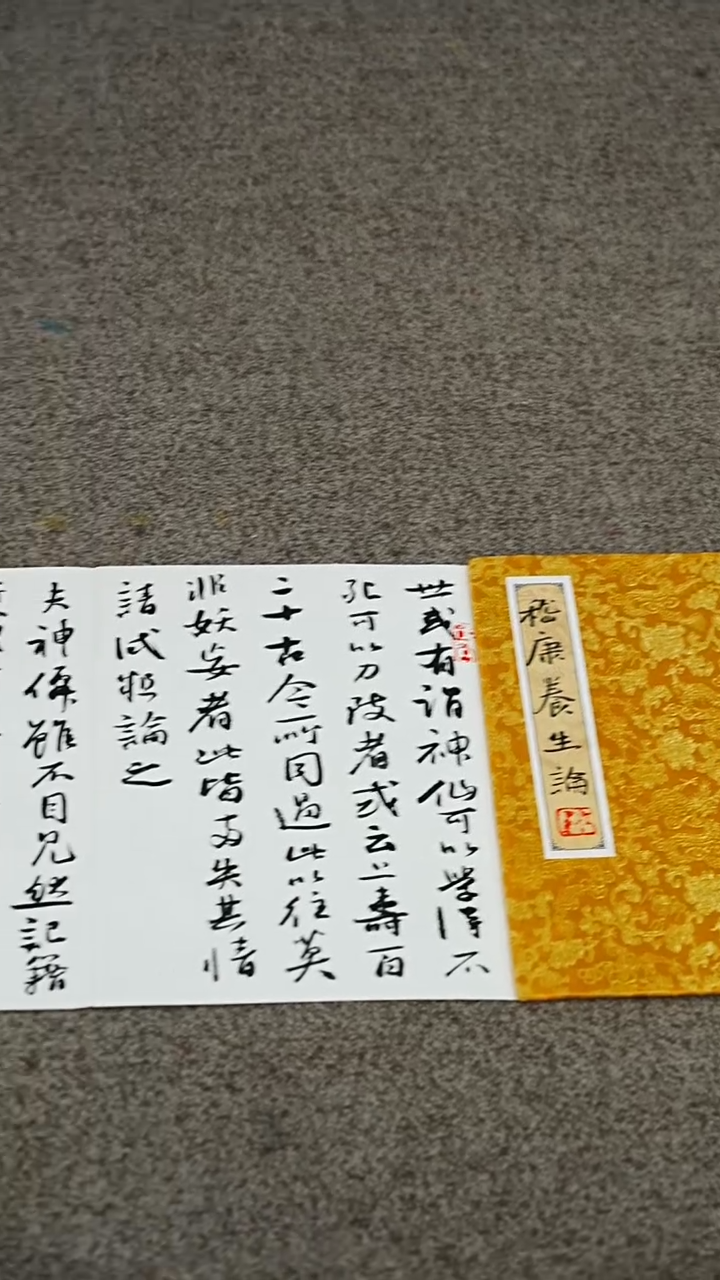 嵇康養生論
世或有謂神仙可以學得不
死可以力致者或云上壽百
二十古今所同過此以往莫
非妖妄者此皆兩失其情
請試粗論之
夫神僊雖不目見然記籍